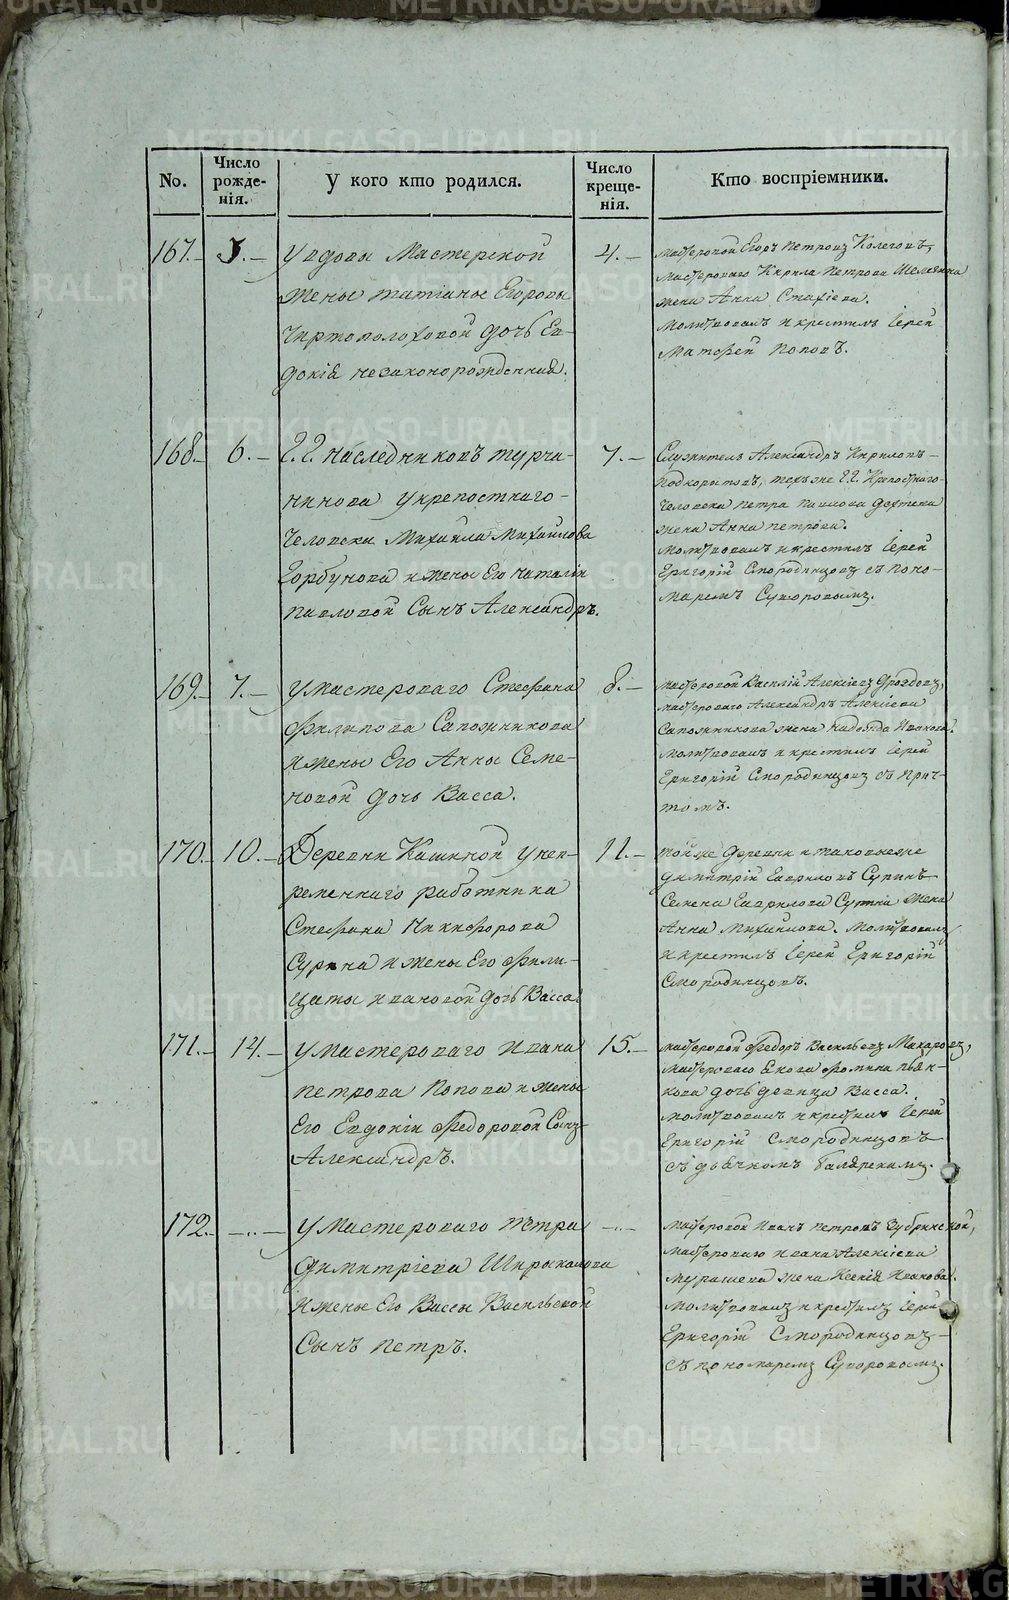 METRIKI.GASO-URAL.RU
No.
Число рожде-нія.
У кого кто родился.
Число креще-нія.
Кто воспріемники.
167.
3.
У вдовы Мастерской
жены татіаны Егоровы
Чертополоховой дочь Ев-
докія незаконорожденная.
4.
мастеровой Егоръ петровъ Колеговъ,
мастероваго Кирила петрова
жена Анна
молитвовалъ и крестилъ Іерей
Матфей поповъ.
168.
6.
Г.Г. наследниковъ турча-
нинова у крепостнаго
человека Михаила Михайлова
Горбунова и жены его наталіи
павловой Сынъ Александръ.
7.
Служитель Александръ Кириловъ
Подкорытовъ, техъ же Г.Г. Крепостнаго
человека петра павлова
жена Анна петрова.
молитвовалъ и крестилъ Іерей
Григорій Смородинцовъ съ поно-
маремъ Суворовымъ.
169.
7.
у мастероваго Стефана
Филипова Сапожникова
и жены Его Анны Семе-
новой дочь Васса.
8.
мастеровой Василій Алексіевъ Дроздовъ,
мастероваго Александръ Алексіева
Сапожникова жена надежда Иванова.
молитвовалъ и крестилъ Іерей
Григорій Смородинцовъ съ прич-
томъ.
170.
10.
Деревни Кашиной у непременнаго работника
Стефана Никифорова
Сурина и жены Его Фили-
цаты ивановой дочь Васса.
11.
той же деревни и таковыеже
димитрій Гавриловъ Суринъ
Семена Гаврилова Сурина жена
Анна михайлова. молитвовалъ
и крестилъ Іерей Григорій
Смородинцовъ.
171.
14.
у мастероваго ивана
петрова попова и жены
Его Евдокіи Федоровой Сынъ
Александръ.
15.
мастеровой Федоръ Васильевъ Макаровъ,
мастероваго Фомина пьян-
кова дочь девица Васса.
молитвовалъ и крестилъ Іерей
Григорій Смородинцовъ
съ дьячкомъ
172.
у мастероваго петра
димитріева Широкалова
и жены Его Вассы Васильевой
Сынъ петръ.
мастеровой иванъ петровъ Зубринской,
мастероваго ивана Алексіева
мурашева жена Ксенія иванова.
молитвовалъ и крестилъ Іерей
Григорій Смородинцовъ
съ пономаремъ Суворовымъ.